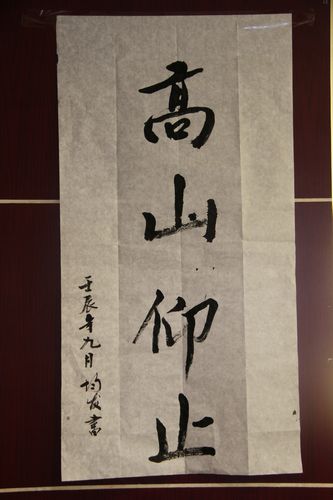 高山仰止
壬辰年九月均发書